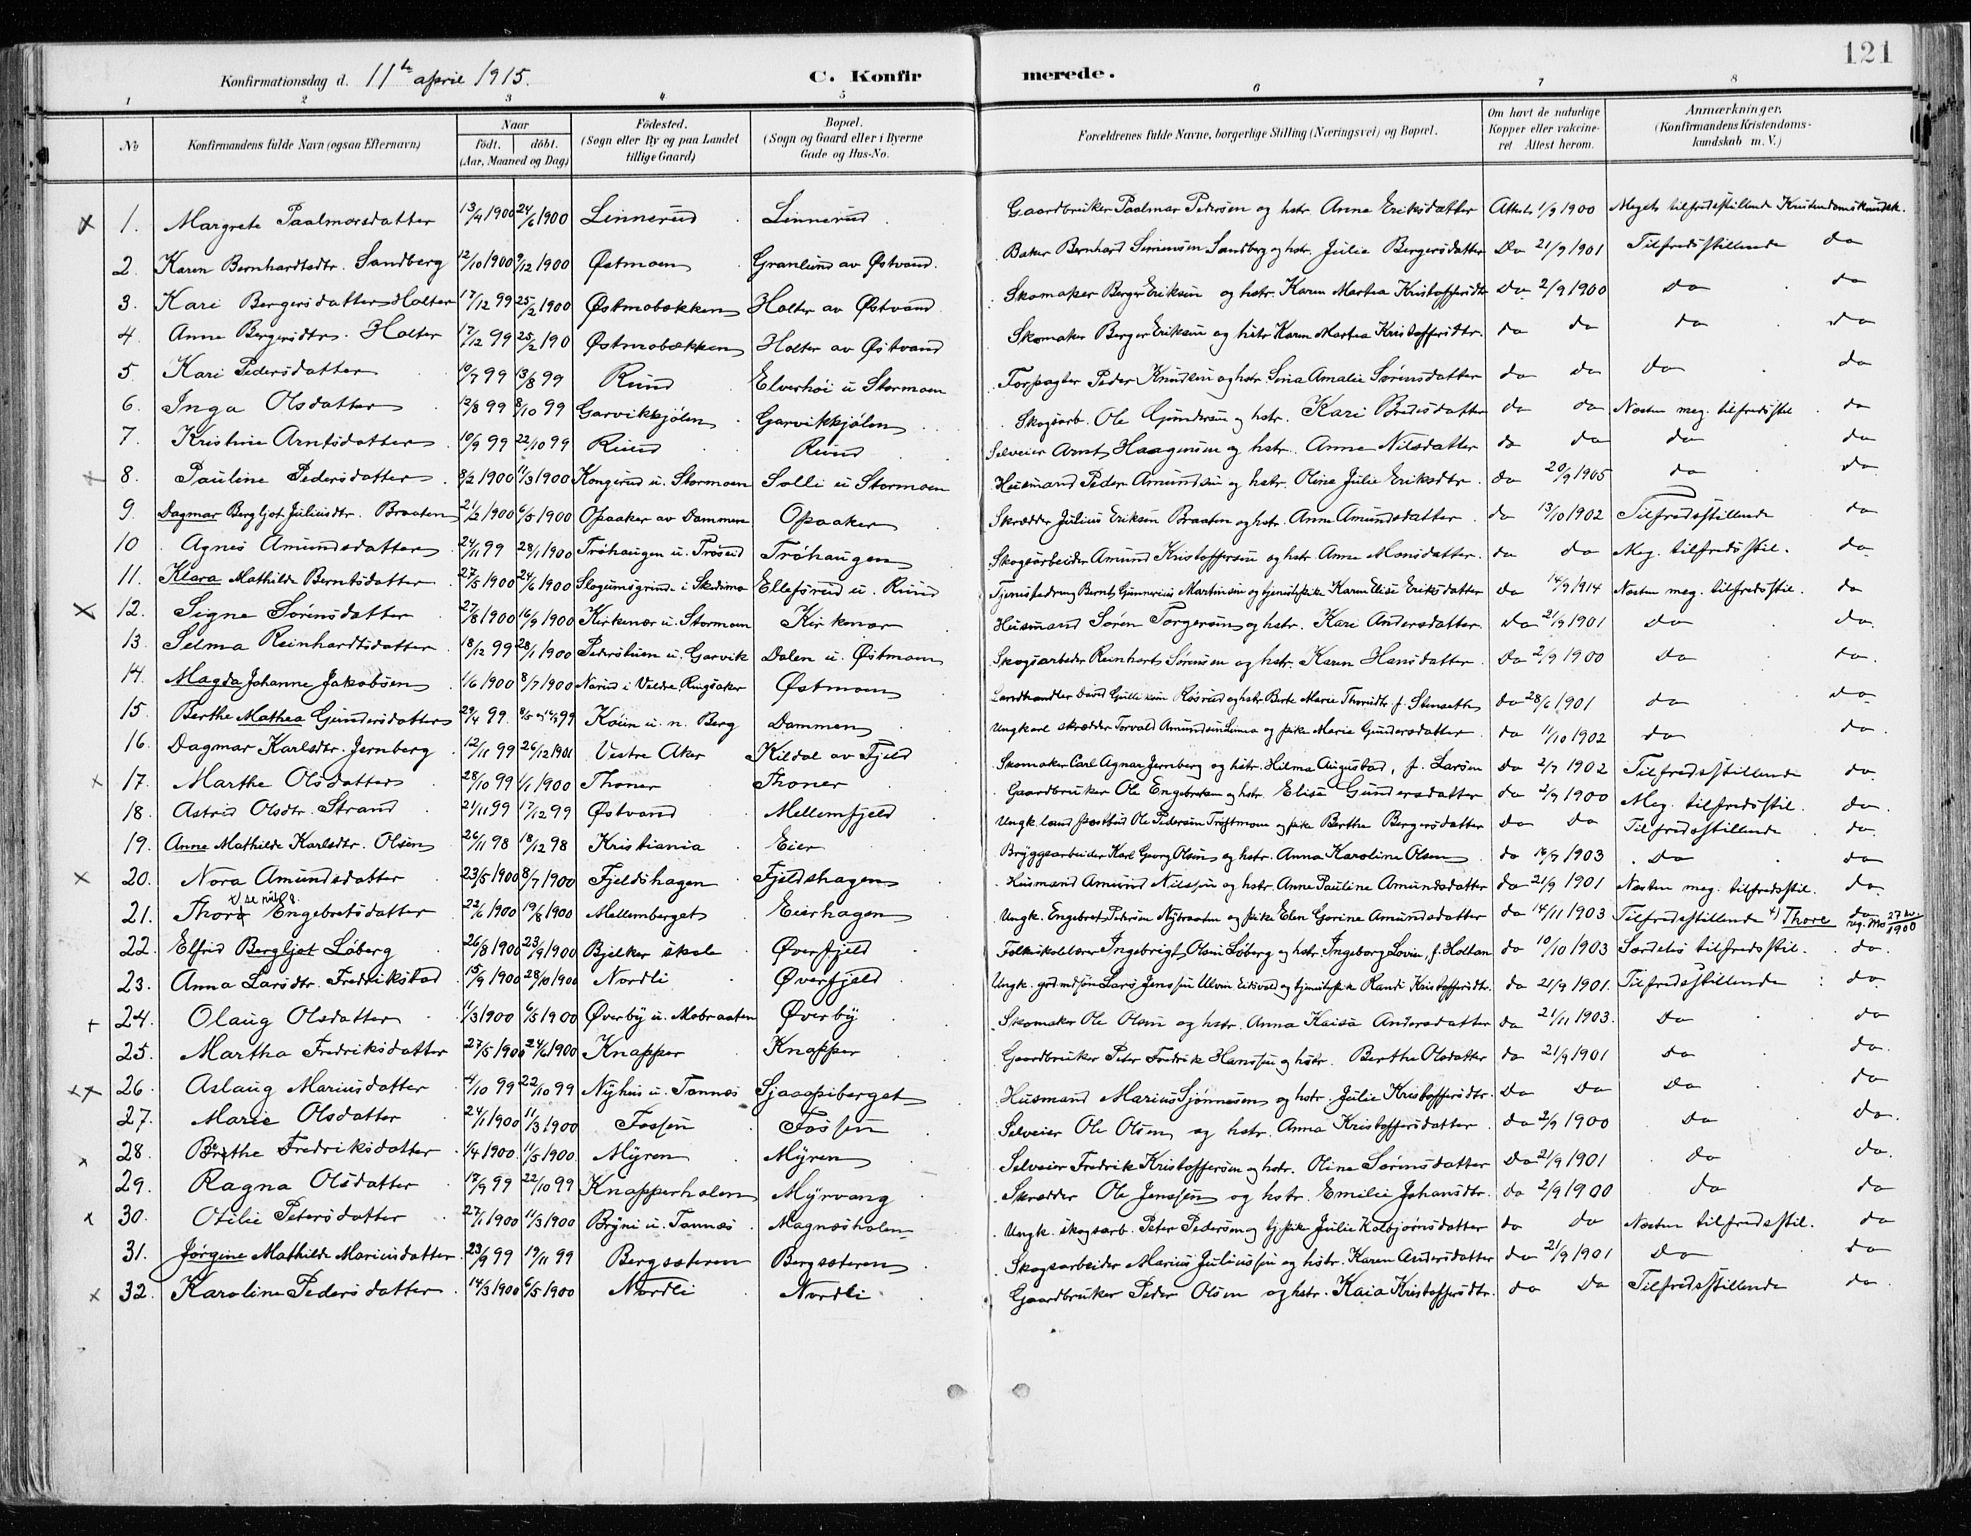 121
Konfirmationsdag d. 11te april 1915. C. Konfirmerede.
1 2 3 4 5 6 7 8
No Konfirmandens fulde Navn (ogsaa Efternavn) Naar født. døbt. (Aar, Maaned og Dag) Födested. (Sogn eller By og paa Landet tillige Gaard) Bopæl. (Sogn og Gaard eller i Byerne Gade og Hus-No. Forældrenes fulde Navne, borgerlige Stilling (Næringsvei) og Bopæl. Om havt de naturlige Kopper eller vakcineret Attest herom. Anmærkninger. (Konfirmandens Kristendomskundskab m. V.)
x 1. Margrete Paalmarsdatter 13/4 1900 24/6 1900 Linnerud Linnerud Gaardbruker Paalmar Pedersen og hstr. Anne Eriksdatter Attest 1/9 1900 Meget tilfredsstillende Kristendomskundsk.
2 Karen Bernhardtsdtr. Sandberg 12/10 1900 9/12 1900 Østmoen Granlund av Østvand. Baker Bernhard Simensen Sandberg og hstr. Julie Bergersdatter Do 21/9 1901 Tilfredsstillende do
3. Kari Bergersdatter Holter 17/12 99 25/2 1900 Østmobækken Holter av Østvand Skomaker Berger Eriksen og hstr. Karen Martea Kristoffersdtr Do. 2/9 1900 Do do
4 Anne Bergersdtr. Holter 17/12 99 25/2 190 Østmobækken Holter av Østvand Skomaker Berger Eriksen og hstr Karen Martea Kristoffersdtr. do do do do
5. Kari Pedersdatter 10/7 99 13/8 99 Ruud Elverhöi u Stormoen Forpagter Peder Knudsen og hstr. Sina Amalie Sørensdatter do do do do
6. Inga Olsdatter 12/8 99 8/10 99 Garvikkjølen Garvikkjølen Skogsarb. Ole Gundersen og hstr. Kari Bredesdatter do do Næsten meg. tilfredsstil do
7. Kristine Arntsdatter 10/9 99 22/10 99 Ruud Ruud Selveier Arnt Haagensen og hstr. Anne Nilsdatter do do do do
x 8. Pauline Pedersdatter 8/2 1900 11/3 1900 Kongerud u. Stormoen Solli u Stormoen Husmand Peder Amundsen og hstr. Oline Julie Eriksdtr do 20/9 1905 do do
9. Dagmar Bergljot Juliusdtr. Braaten 21/2 1900 6/5 1900 Opaaker av Dammen Opaaker Skrædder Julius Eriksen Braaten og hstr. Anne Amundsdatter do 13/10 1902 Tilfredsstillende do
10 Agnes Amundsdatter 24/11 99 28/1 1900 Trøhaugen u. Trøseid Trøhaugen Skogsarbeider Amund Kristoffersen og hstr Anne Monsdatter. do do Meg. tilfredsstil. do
11. Klara Mathilde Berntsdatter 27/5 1900 24/6 1900 Slogumsgrind i Skedsmo Ellefsrud u. Ruud Tjenestedreng Bernt Gunnerius Martinsen og tjenestepike Karen Elise Eriksdatter do 14/9 1914 Næsten meg. tilfredsstil. do
x 12. Signe Sørensdatter 27/8 1900 16/9 1900 Kirkenær u. Stormoen Kirkenær Husmand Søren Torgersen og hstr. Kari Andersdatter. do 21/9 1901 do do
13. Selma Reinhardtsdatter 18/12 99 28/1 1900 Pederstuen u. Garvik Dalen u. Østmoen Skogsarbeder Reinhart Sørensen og hstr. Karen Hansdatter. do 2/9 1900 Do do.
14. Magda Johanne Jakobsen 1/6 1900 8/7 1900 Narud i Veldre, Ringsaker Østmoen do 28/6 1901 do do
15. Berthe Mathea Gundersdatter 29/4 99. Koien u. n. Berg Dammen Ungkarl skrædder Torvald Amundsen Linna og pike Marie Gundersdatter do 11/10 1902 do do
16. Dagmar Karlsdtr. Jernberg 12/11 99 26/12 1901 Vestre Aker Kildal av Fjeld Skomaker Carl Agnar Jernberg og hstr. Hilma Augustad, f. Larsen do 2/7 1902 Tilfredsstillende do
x 17. Marthe Olsdatter 28/10 99 1/1 1900 Thoner Thoner Gaardbruker Ole Engebretsen og hstr. Elise Gundersdatter do 2/9 1900 Meg. tilfredsstil. do.
18. Astrid Olsdtr. Strand 21/11 99 17/12 99 Østvand Mellemfjeld Ungk. landpostbud Ole Pedersen Trøftmoen og pike Berthe Bergersdatter do do Tilfredsstillende do.
19. Anne Mathilde Karlsdtr. Olsen 26/11 98 18/12 98 Kristiania Eier Bryggearbeider Karl Georg Olsen og hstr. Anna Karoline Olsen do 16/9 1903 do do
x 20. Nora Amundsdatter 23/5 1900 8/7 1900 Fjeldshagen Fjeldshagen Husmand Amund Nilssen og hstr. Anne Pauline Amundsdatter do 21/9 1901 Næsten meg. tilfredsstil. do.
21. Thora Engebretsdatter 22/6 1900 19/8 1900 Mellemberget Eierhagen Ungk. Engebret Petersen Nybraaten og pike Elen Gorine Amundsdatter do 14/11 1903 Tilfredsstillende Thore do
22. Elfrid Bergljot Løberg 26/8 1900 23/9 1900 Bjelker skole Øverfjeld Folkeskolelærer Ingebrigt Olsen Løberg og hstr. Ingeborg Lovise, f. Holtan do 10/10 1903 Særdeles tilfredsstil. do.
23. Anna Larsdtr. Fredrikstad 15/9 1900 28/10 1900 Nordli Øverfjeld Ungk. grdmdsøn Lars Jenssen Ulvin Eidsvold og tjenestepik Randi Kristoffersdtr. do 21/9 1901. Tilfredsstillende do
x 24. Olaug Olsdatter 11/3 1900 6/5 1900 Øverby u. Mobraaten Øverby Skomaker Ole Olsen og hstr. Anna Kaisa Andersdatter do 21/11 1903. Do do
25. Martha Fredriksdatter 27/5 1900 24/6 1900 Knapper Knapper Gaardbruker Peter Fredrik Hanssen og hstr. Berthe Olsdatter do 21/9 1901 Do do.
xx 26. Aslaug Mariusdatter 4/10 99 22/10 99 Nyhus u. Tannæs Sjaapiberget Husmand Marius Sjønnesen og hstr. Julie Kristoffersdtr. Do Do Do do
27. Marie Olsdatter 24/1 1900 11/3 1900 Fossen Fossen Selveier Ole Olsen og hstr. Anna Kristoffersdatter do 2/9 1900 Do do.
x 28. Berthe Fredriksdatter 1/4 1900. 11/5 1900. Myren Myren Selveier Fredrik Kristoffersen og hstr. Oline Sørensdatter Do 21/9 1901 Do do.
29. Ragna Olsdatter 17/9 99 22/10 99 Knapperholen Myrvang Skrædder Ole Jenssen og hstr. Emilie Johansdtr. do 2/9 1900 do do
x 30. Otilie Petersdatter 27/1 1900 11/3 1900 Bryni u. Tannæs Magnæsholen Ungk. skogsarb. Peter Pedersen og tj. pik Julie Kolbjørnsdatter do do Næsten tilfredsstil. do
31. Jørgine Mathilde Mariusdatter 23/9 99 19/11 99 Bergsæteren Bergsæteren Skogsarbeider Marius Juliussen og hstr. Karen Andersdatter do 21/9 1901 Do do
x 32. Karoline Pedersdatter 14/3 1900 6/5 1900 Nordli Nordli Gaardbruker Peder Olsen og hstr. Kaia Kristoffersdtr. do do Tilfredsstillende do